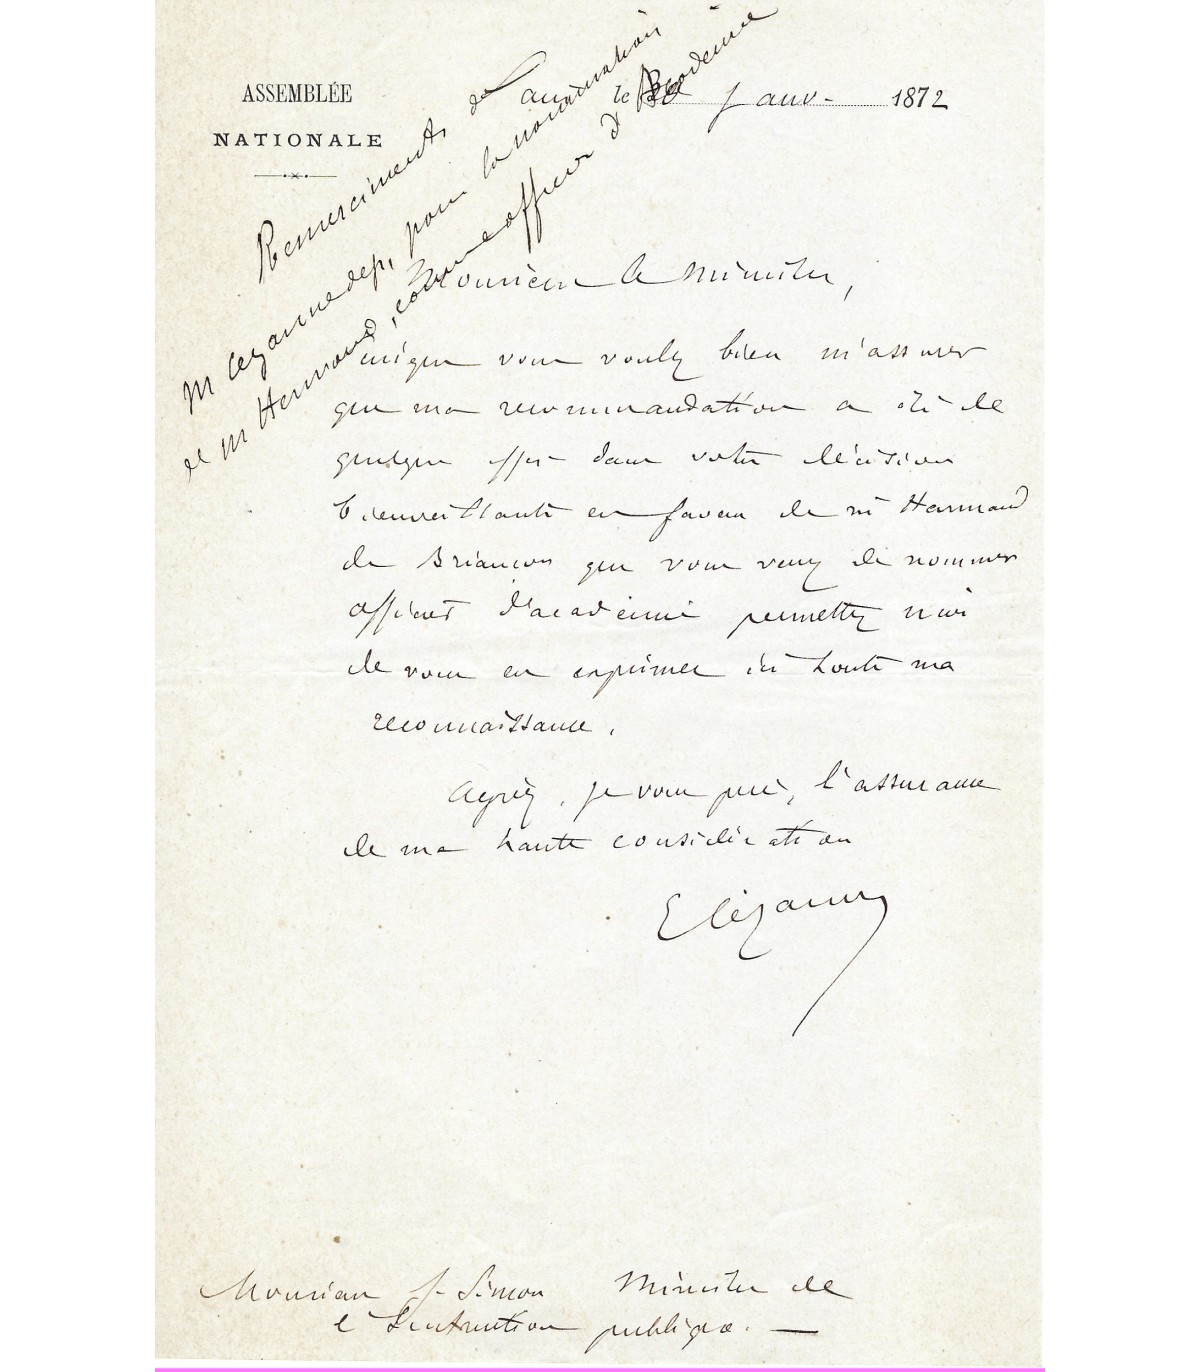 ASSEMBLÉE
NATIONALE
le 30 Janv. 1872
Remerciments de
M Cézanne dep, pour la nomination
de M Hermand, comme officier d'Académie
Monsieur le Ministre,
vous voulez bien m'assurer
que ma recommandation a été de
quelque effet dans votre décision
bienveillante en faveur de M Harmand
de Briançon que vous venez de nommer
officier d'académie permettez moi
de vous en exprimer ici toute ma
reconnaissance.
Agréez, je vous prie, l'assurance
de ma haute considération
E Cézanne
Monsieur J. Simon Ministre de
l'Instruction publique. —